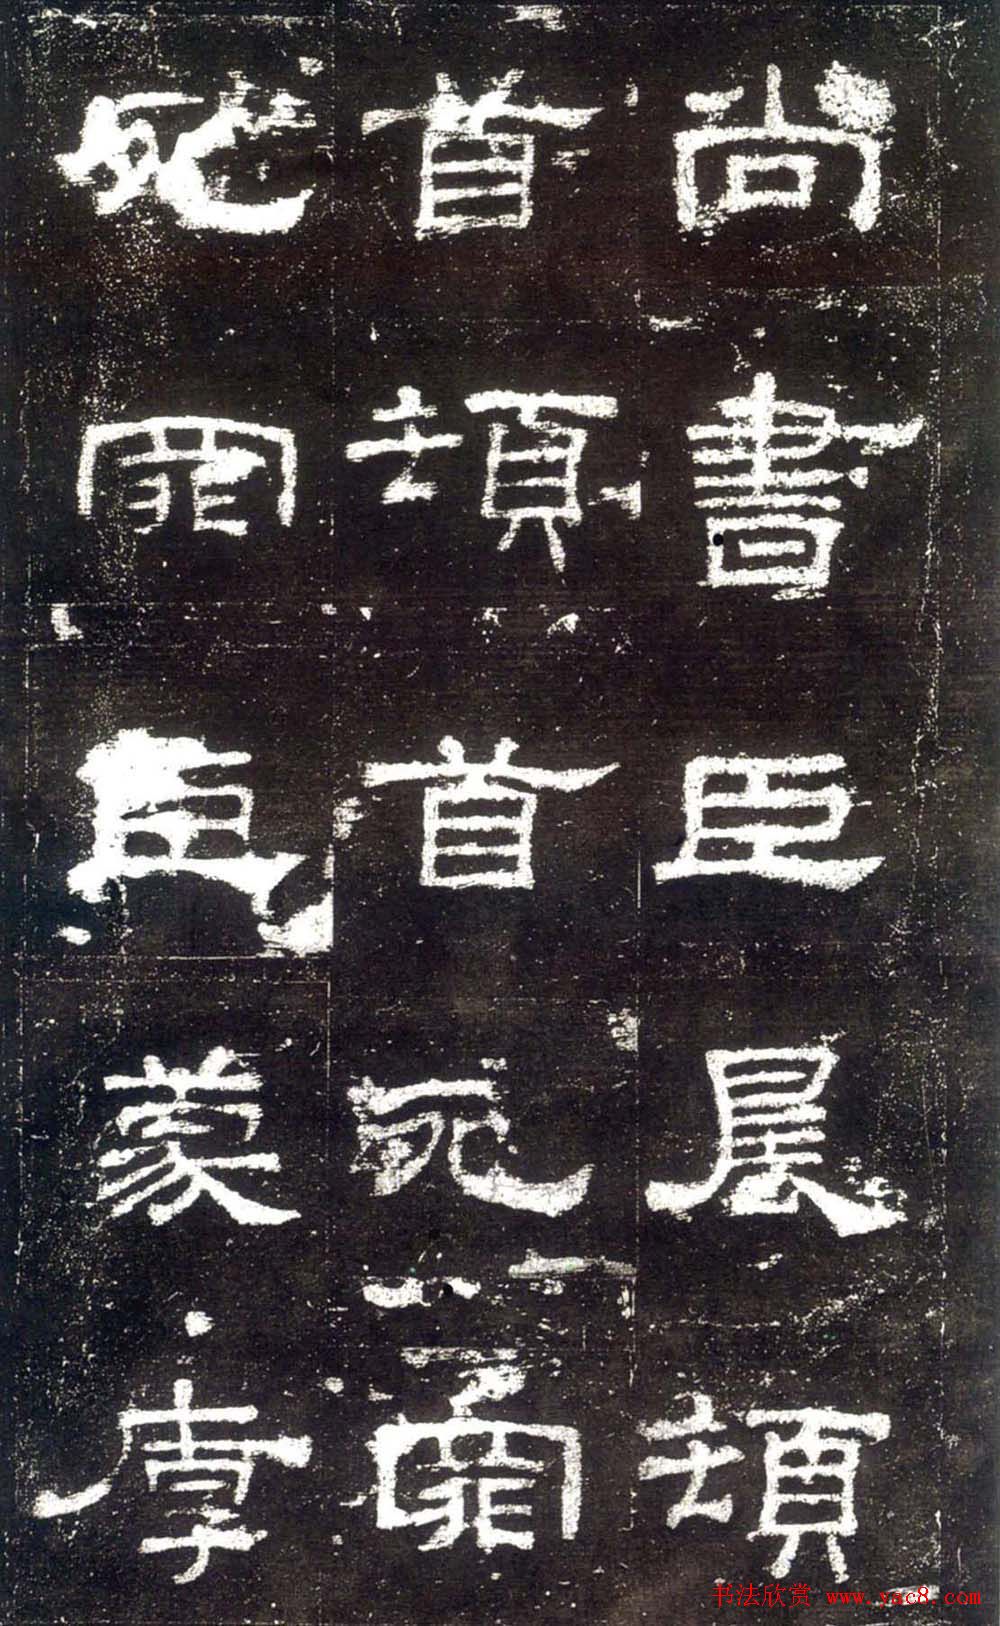 尚書臣晨頓
首頓首死罪
死罪臣蒙厚
书法欣赏 www.yac8.com